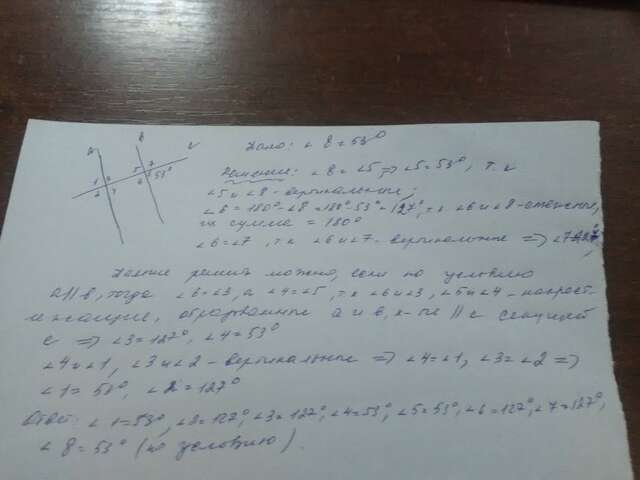 a b c
1 3 5 7
2 4 6 53°
Дано: ∠8=53°
Решение: ∠8=∠5 => ∠5=53°, т.к
∠5 и ∠8 - вертикальные;
∠6=180°-∠8=180°-53°=127°, т.к ∠6 и ∠8 - смежные,
их сумма = 180°
∠6=∠7, т.к ∠6 и ∠7 - вертикальные => ∠7=127°;
Дальше решить можно, если по условию
a||b, тогда ∠6=∠3, а ∠4=∠5, т.к ∠6 и ∠3, ∠5 и ∠4 - накрест-
лежащие, образованные a и b, || с секущей
c => ∠3=127°, ∠4=53°
∠4 и ∠1, ∠3 и ∠2 - вертикальные => ∠4=∠1, ∠3=∠2 =>
∠1=53°, ∠2=127°
Ответ: ∠1=53°, ∠2=127°, ∠3=127°, ∠4=53°, ∠5=53°, ∠6=127°, ∠7=127°,
∠8=53° (по условию).